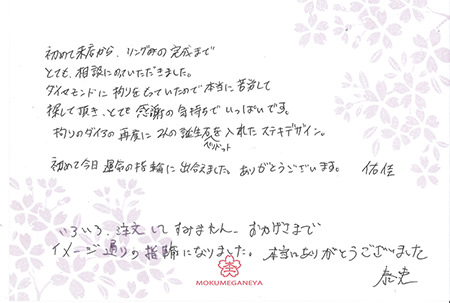 初めて来店から、リングの完成まで
とても、相談にのっていただきました。
ダイヤモンドに拘りをもっていたので本当に苦労して
探して頂き、とても感謝の気持ちでいっぱいです。
拘りのダイヤの再度に2人の誕生石を入れたステキデザイン。
ペリドット
初めて今日運命の指輪に出会えました。ありがとうございます。 佑佳
いろいろ、注文してすみません。おかげさまで
イメージ通りの指輪になりました。本当にありがとうございました
MOKUMEGANEYA